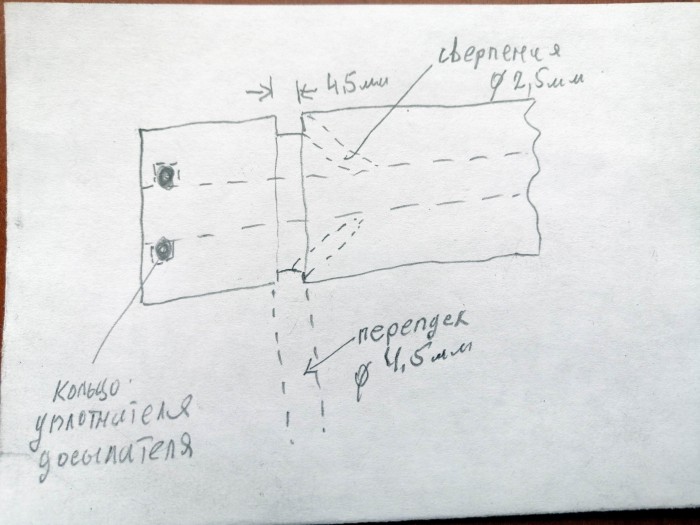 4,5мм
сверления
φ 2,5мм
перепуск
φ 4,5мм
кольцо
уплотнителя
досылателя